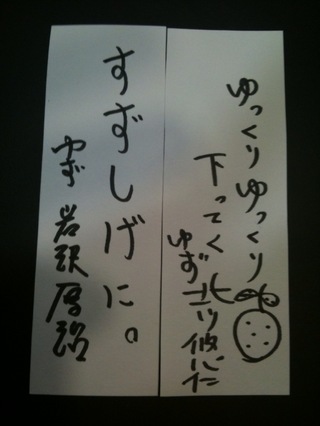 ゆっくりゆっくり
下ってく
ゆず 北川悠仁
すずしげに。
ゆず 岩沢厚治